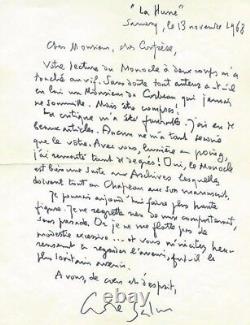 "La Hune"
Sanary, le 13 novembre 1968
Cher Monsieur, cher Confrère,
Votre lecture du Monocle à deux coups m'a
touché au vif. Sans doute tout auteur a-t-il
en lui un Monsieur du Corbeau qui jamais
ne sommeille. Mais être compris!
La critique m'a été favorable. J'ai eu de
beaux articles. Aucun ne m'a tant
que le vôtre. Avec vous, lumière au poing,
j'ai remonté tant de degrés! Oui, le Monocle
est bien une suite aux Archives lesquelles
doivent tant au Chapeau que son manuscrit.
Je pourrais aujourd'hui faire plus
figure. Je ne regrette rien de mon comportement,
sans parade. Or je ne me flatte pas de
modestie excessive... et vous m'incitez heu-
reusement à regarder l'avenir, fût-il le
plus lointain avenir.
A vous, de cœur et d'esprit,